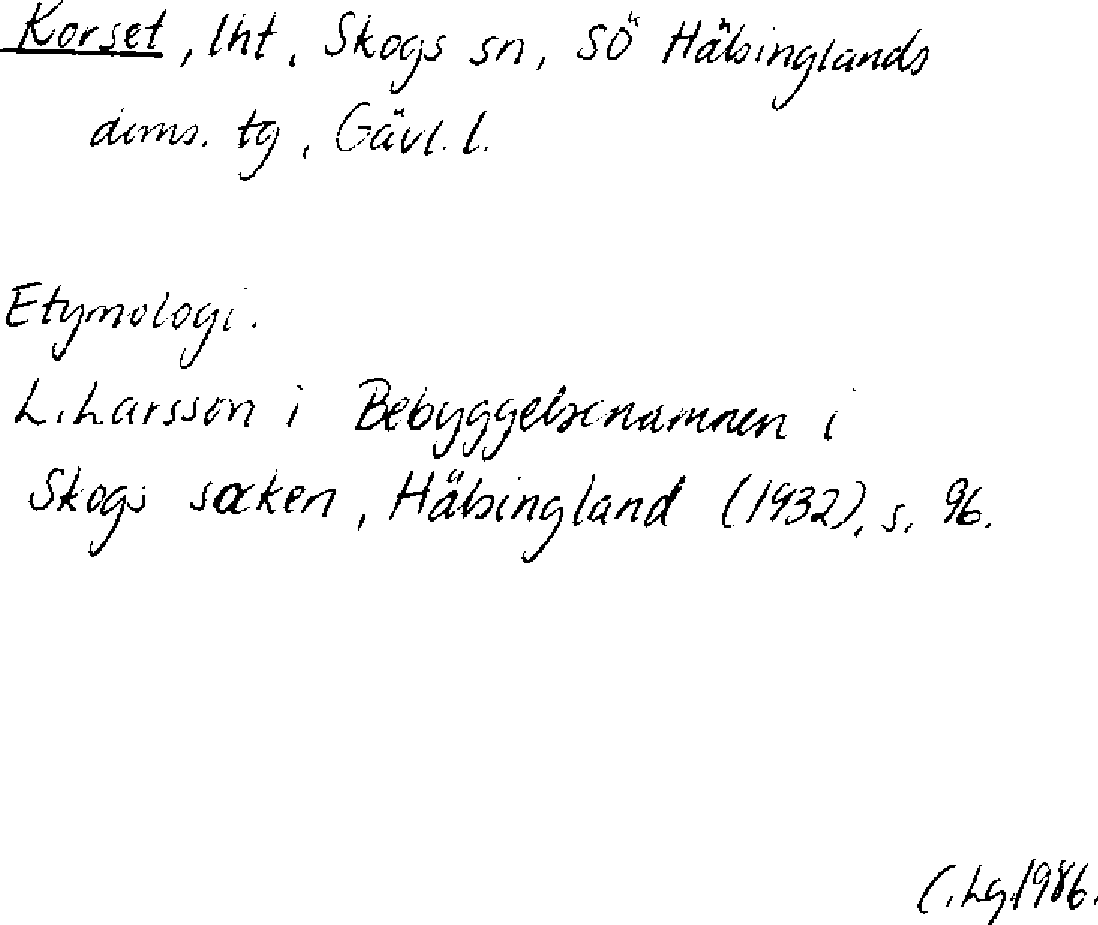 Korset, lht, Skogs sn, SÖ Hälsinglands
doms. tg, Gävl. l.
Etymologi.
L. Larsson i Bebyggelsenamnen i
Skogs socken, Hälsingland (1932), s. 96.
C. Lg. 1986.